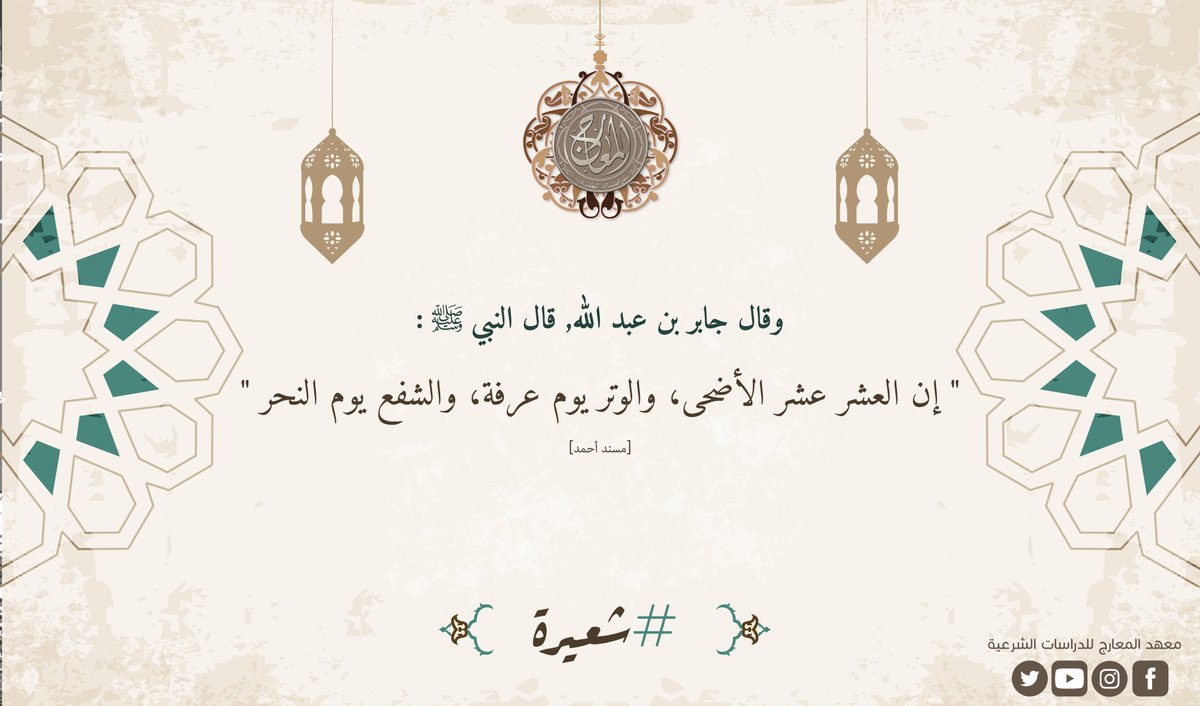 المعارج
وقال جابر بن عبد الله, قال النبي ﷺ :
" إن العشر عشر الأضحى، والوتر يوم عرفة، والشفع يوم النحر "
[مسند أحمد]
#شعيرة
معهد المعارج للدراسات الشرعية